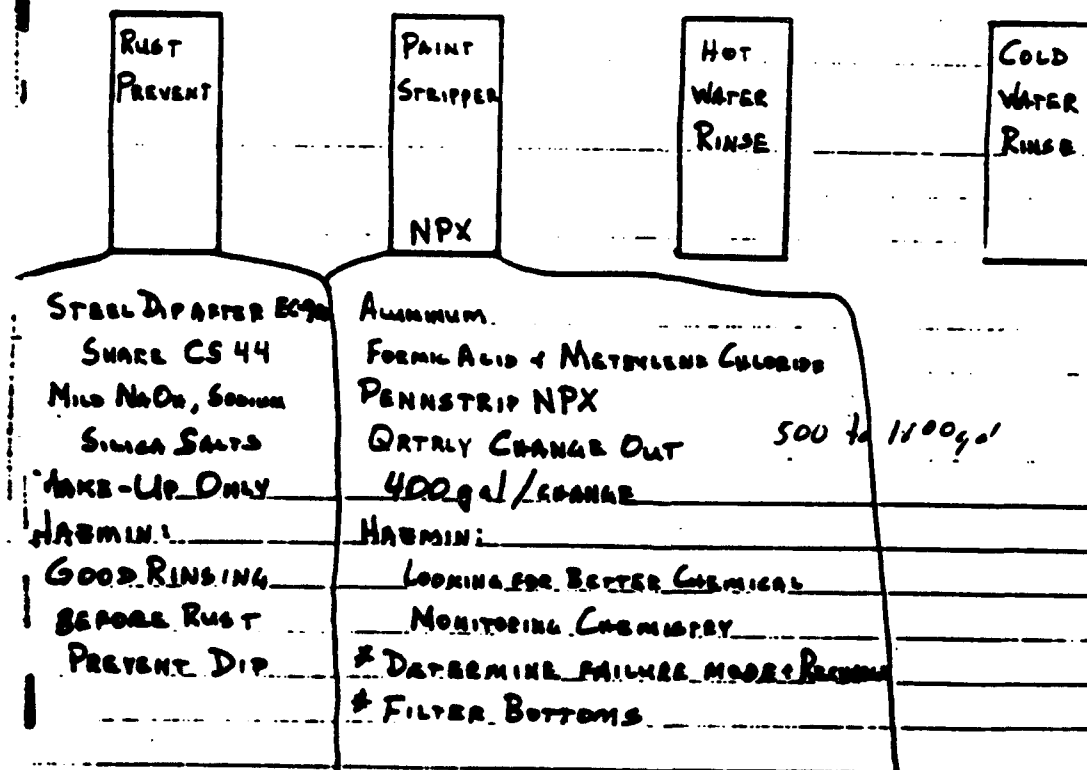 RUST
PREVENT
PAINT
STRIPPER
NPX
HOT
WATER
RINSE
COLD
WATER
RINSE
STEEL DIP AFTER
SHARE CS 44
MILD NaOH, SODIUM
SILICA SALTS
MAKE-UP ONLY
HAZMIN:
GOOD RINSING
BEFORE RUST
PREVENT DIP
ALUMINUM
FORMIC ACID & METHYLENE CHLORIDE
PENNSTRIP NPX
QRTRLY CHANGE OUT
400 gal/CHANGE
HAZMIN:
LOOKING FOR BETTER CHEMICAL
MONITORING CHEMISTRY
* DETERMINE FAILURE MODE &
* FILTER BOTTOMS
500 to gal